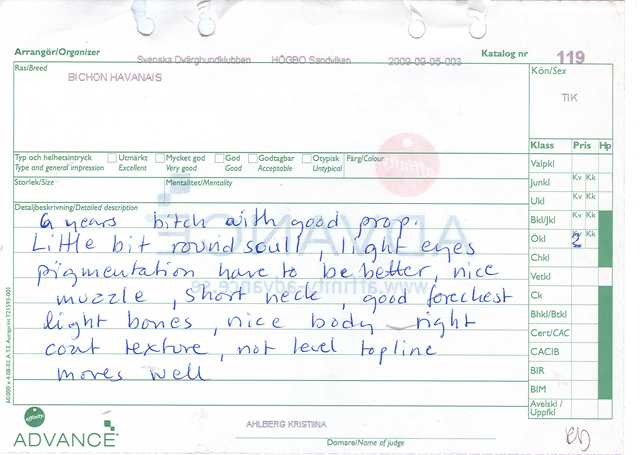 Arrangör/Organizer
Svenska Dvärghundklubben HÖGBO Sandviken 2009-09-05-003
Katalog nr 119
Ras/Breed
BICHON HAVANAIS
Kön/Sex
TIK
Klass Pris Hp
Typ och helhetsintryck
Type and general impression
Utmärkt
Excellent
Mycket god
Very good
God
Good
Godtagbar
Acceptable
Otypisk
Untypical
Färg/Colour
Storlek/Size
Mentalitet/Mentality
Detaljbeskrivning/Detailed description
6 years bitch with good prop.
Little bit round scull, light eyes
pigmentation have to be better, nice
muzzle, short neck, good forechest
light bones, nice body right
coat texture, not level topline
moves well
Valpkl
Junkl Kv Kk
Ukl Kv Kk
Bkl/Jkl Kv Kk
Ökl 2 Kk
Chkl
Vetkl
Ck
Bhkl/Btkl
Cert/CAC
CACIB
BIR
BIM
Avelskl /
Uppfkl
affinity
ADVANCE
www.affinity-advance.se
affinity
ADVANCE
AHLBERG KRISTIINA
Domare/Name of judge